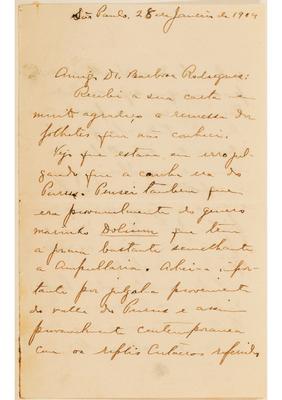 São Paulo, 28 de Janeiro de 1904
Amigo Dr. Barbosa Rodrigues:
Recebi a sua carta e
muito agradeço a remessa dos
folhetos que não conheci.
Vejo que estava em erro jul-
gando que a concha era do
Purus. Pensei também que
era provavelmente do genero
marinho Dolium que tem
a forma bastante semelhante
a Ampullaria. Achei-a impor-
tante por julgala proveniente
do valle do Purus e assim
provavelmente contemporanea
com os reptis Cretaceos referidos